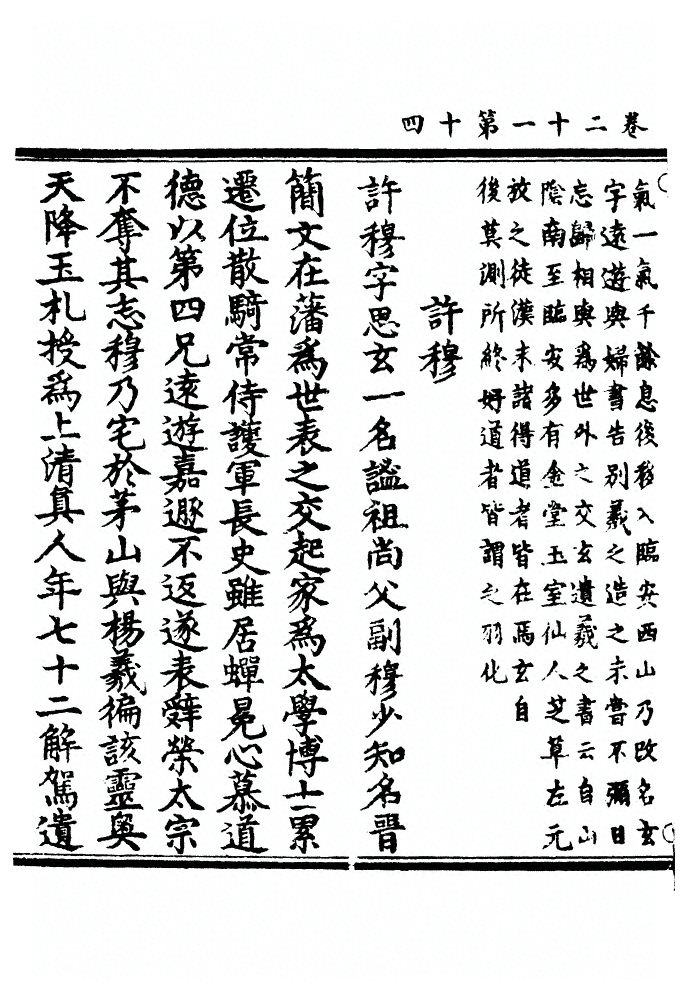 卷二十一第十四
氣一氣千餘息後移入臨安西山乃改名玄
字遠遊與婦書告別羲之造之未嘗不彌日
忘歸相與為世外之交玄遺羲之書云自山
陰南至臨安多有金堂玉室仙人芝草左元
放之徒漢末諸得道者皆在焉玄自
後莫測所終好道者皆謂之羽化
許穆
許穆字思玄一名謐祖尚父副穆少知名晉
簡文在藩為世表之交起家為太學博士累
遷位散騎常侍護軍長史雖居蟬冕心慕道
德以第四兄遠遊嘉遯不返遂表辭榮太宗
不奪其志穆乃宅於茅山與楊羲徧該靈奥
天降玉札授為上清真人年七十二解駕遺